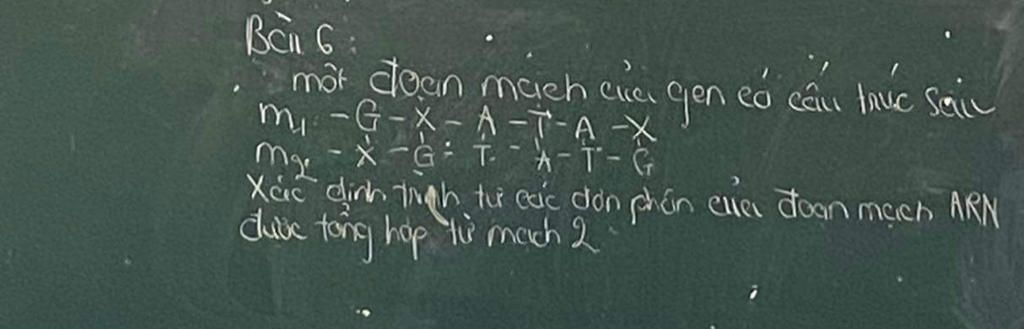 Bài 6:
một đoạn mạch của gen có cấu trúc sau
m1: - G - X - A - T - A - X
m2: - X - G - T - A - T - G
Xác định trình tự các đơn phân của đoạn mạch ARN
được tổng hợp từ mạch 2